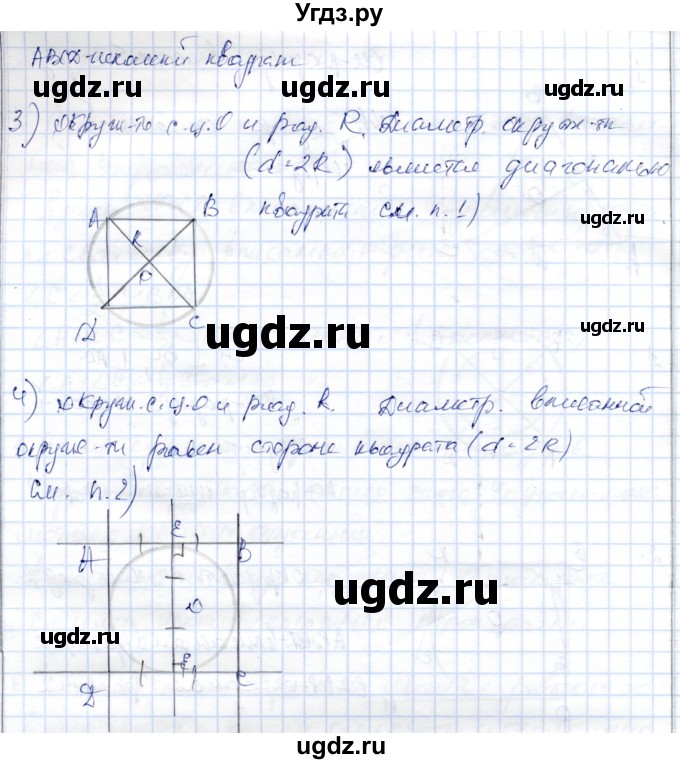 Угдз.ру
ABCD-искомый квадрат
ugdz.ru ugdz.ru
3) Окруж-ть с.ц.O и рад. R. Диаметр. окруж-ти
(d=2R) является диагональю
A B квадрата см. п. 1)
ugdz.ru
R
O
ugdz.ru
D C
4) Окруж.с.ц.O и рад. R. Диаметр. вписанной
окруж-ти равен стороне квадрата (d=2R)
см. п. 2)
E
A B
ugdz.ru
O
ugdz.ru
F
D C
ugdz.ru
ugdz.ru